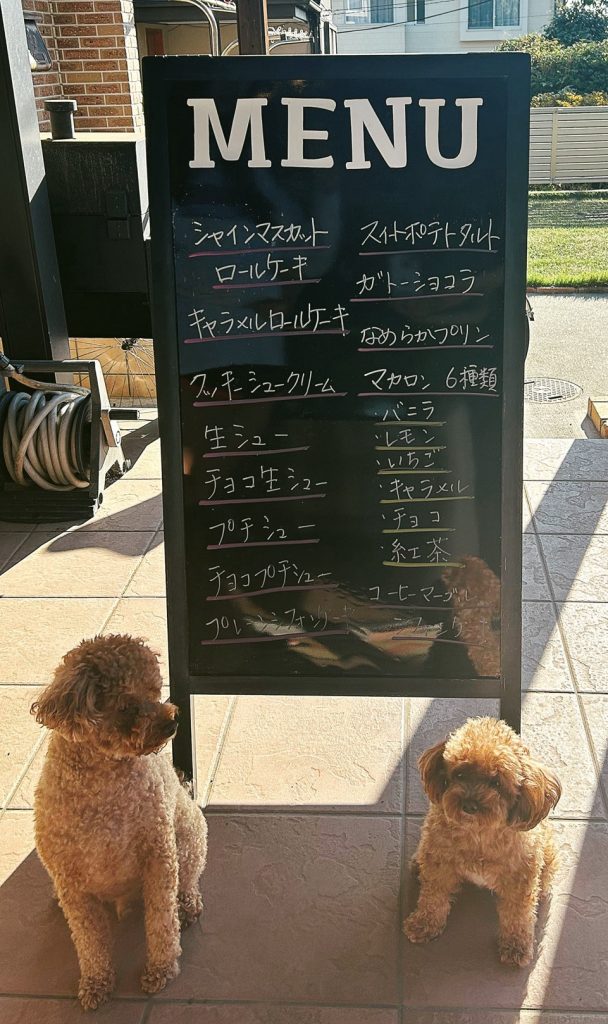 MENU
シャインマスカット
ロールケーキ
キャラメルロールケーキ
クッキーシュークリーム
生シュー
チョコ生シュー
プチシュー
チョコプチシュー
プレーンシフォンケーキ
スイートポテトタルト
ガトーショコラ
なめらかプリン
マカロン 6種類
・バニラ
・レモン
・いちご
・キャラメル
・チョコ
・紅茶
コーヒーマーブル
シフォンケーキ